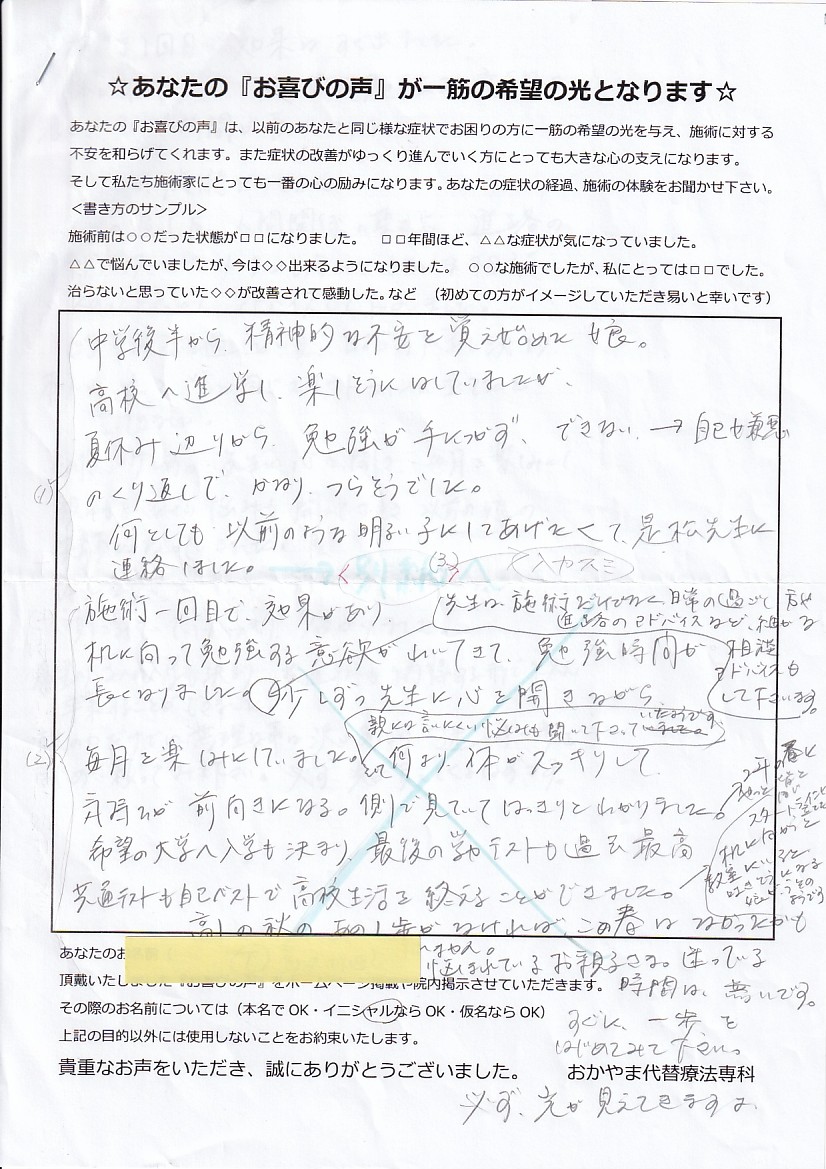 ☆あなたの『お喜びの声』が一筋の希望の光となります☆
あなたの『お喜びの声』は、以前のあなたと同じ様な症状でお困りの方に一筋の希望の光を与え、施術に対する
不安を和らげてくれます。また症状の改善がゆっくり進んでいく方にとっても大きな心の支えになります。
そして私たち施術家にとっても一番の心の励みになります。あなたの症状の経過、施術の体験をお聞かせ下さい。
＜書き方のサンプル＞
施術前は○○だった状態が□□になりました。　□□年間ほど、△△な症状が気になっていました。
△△で悩んでいましたが、今は◇◇出来るようになりました。　○○な施術でしたが、私にとっては□□でした。
治らないと思っていた◇◇が改善されて感動した。など　（初めての方がイメージしていただき易いと幸いです）
(1)
中学後半から、精神的な不安を覚え始めた娘。
高校へ進学し、楽しそうにはしていましたが、
夏休み辺りから、勉強が手につかず、できない。→自己嫌悪
のくり返しで、かなり、つらそうでした。
何としても以前のような明るい子にしてあげたくて、是松先生に
連絡しました。
(3)
入カスミ
(2)
施術一回目で、効果があり、
机に向って勉強する意欲がわいてきて、勉強時間が
長くなりました。少しずつ先生に心を開きながら、
先生は、施術だけでなく、日常の過ごし方や
進路のアドバイスなど、細かな
相談
アドバイスも
して下さいます。
親には言いにくい悩みも聞いて下さって
いたようです
毎月を楽しみにしていました。何より、体がスッキリして、
気持ちが前向きになる。側で見ていてはっきりとわかりました。
希望の大学へ入学も決まり、最後の学年テストも過去最高
共通テストも自己ベストで高校生活を終えることができました。
2年の春に
やっと
スタートラインに
机に向かうと
教室にいると
高1の秋の、あの1歩がなければこの春はなかったかも
しれません。
悩まれているお親子さま。迷っている
時間は、無いです。
すぐに、一歩を
はじめてみて下さい。
必ず、光が見えてきますよ。
あなたのお
頂戴いたしました『お喜びの声』をホームページ掲載や院内掲示させていただきます。
その際のお名前については（本名でOK・イニシャルならOK・仮名ならOK）
上記の目的以外には使用しないことをお約束いたします。
貴重なお声をいただき、誠にありがとうございました。　おかやま代替療法専科